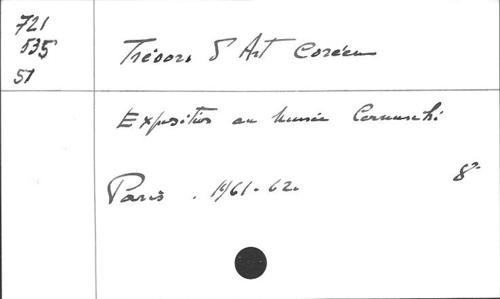 721
535
51
Trésors d'Art Coréen
Exposition au Musée Cernuschi
Paris . 1961-62.
8°